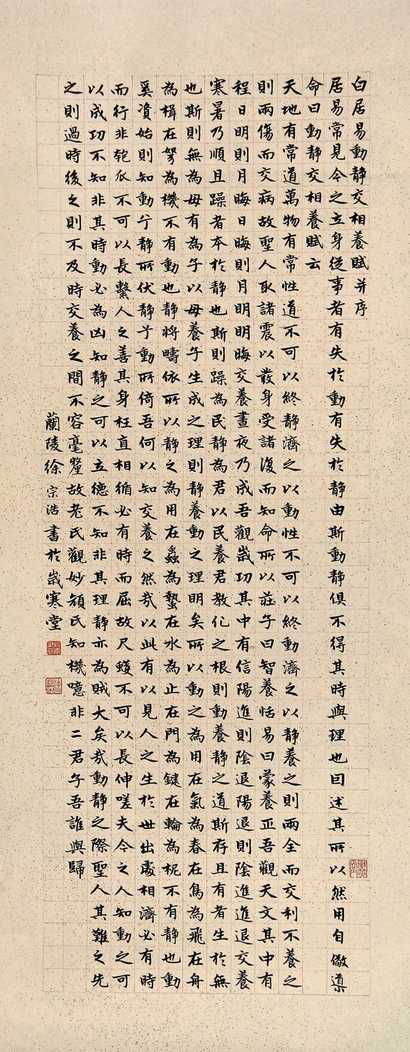 白居易動靜交相養賦并序
居易常見今之立身從事者有失於動有失於靜由斯動靜俱不得其時與理也因述其所以然用自儆導
命曰動靜交相養賦云
天地有常道萬物有常性道不可以終靜濟之以動性不可以終動濟之以靜養之則兩全而交利不養之
則兩傷而交病故聖人取諸震以發身受諸復而知命所以莊子曰智養恬易曰蒙養正吾觀天文其中有
程日明則月晦日晦則月明明晦交養晝夜乃成吾觀歲功其中有信陽進則陰退陽退則陰進進退交養
寒暑乃順且躁者本於靜也斯則躁為民靜為君以民養君教化之根則動養靜之道斯存且有者生於無
也斯則無為母有為子以母養子生成之理則靜養動之理明矣所以動之為用在氣為春在鳥為飛在舟
為楫在弩為機不有動也靜將疇依所以靜之為用在蟲為蟄在水為止在門為鍵在輪為柅不有靜也動
奚資始則知動兮靜所伏靜兮動所倚吾何以知交養之然哉以此有以見人之生於世出處相濟必有時
而行非匏瓜不可以長繫人之善其身枉直相循必有時而屈故尺蠖不可以長伸嗟夫今之人知動之可
以成功不知非其時動必為凶知靜之可以立德不知非其理靜亦為賊大矣哉動靜之際聖人其難之先
之則過時後之則不及時交養之間不容毫釐故老氏觀妙顏氏知機噫非二君子吾誰與歸
蘭陵徐宗浩書於歲寒堂